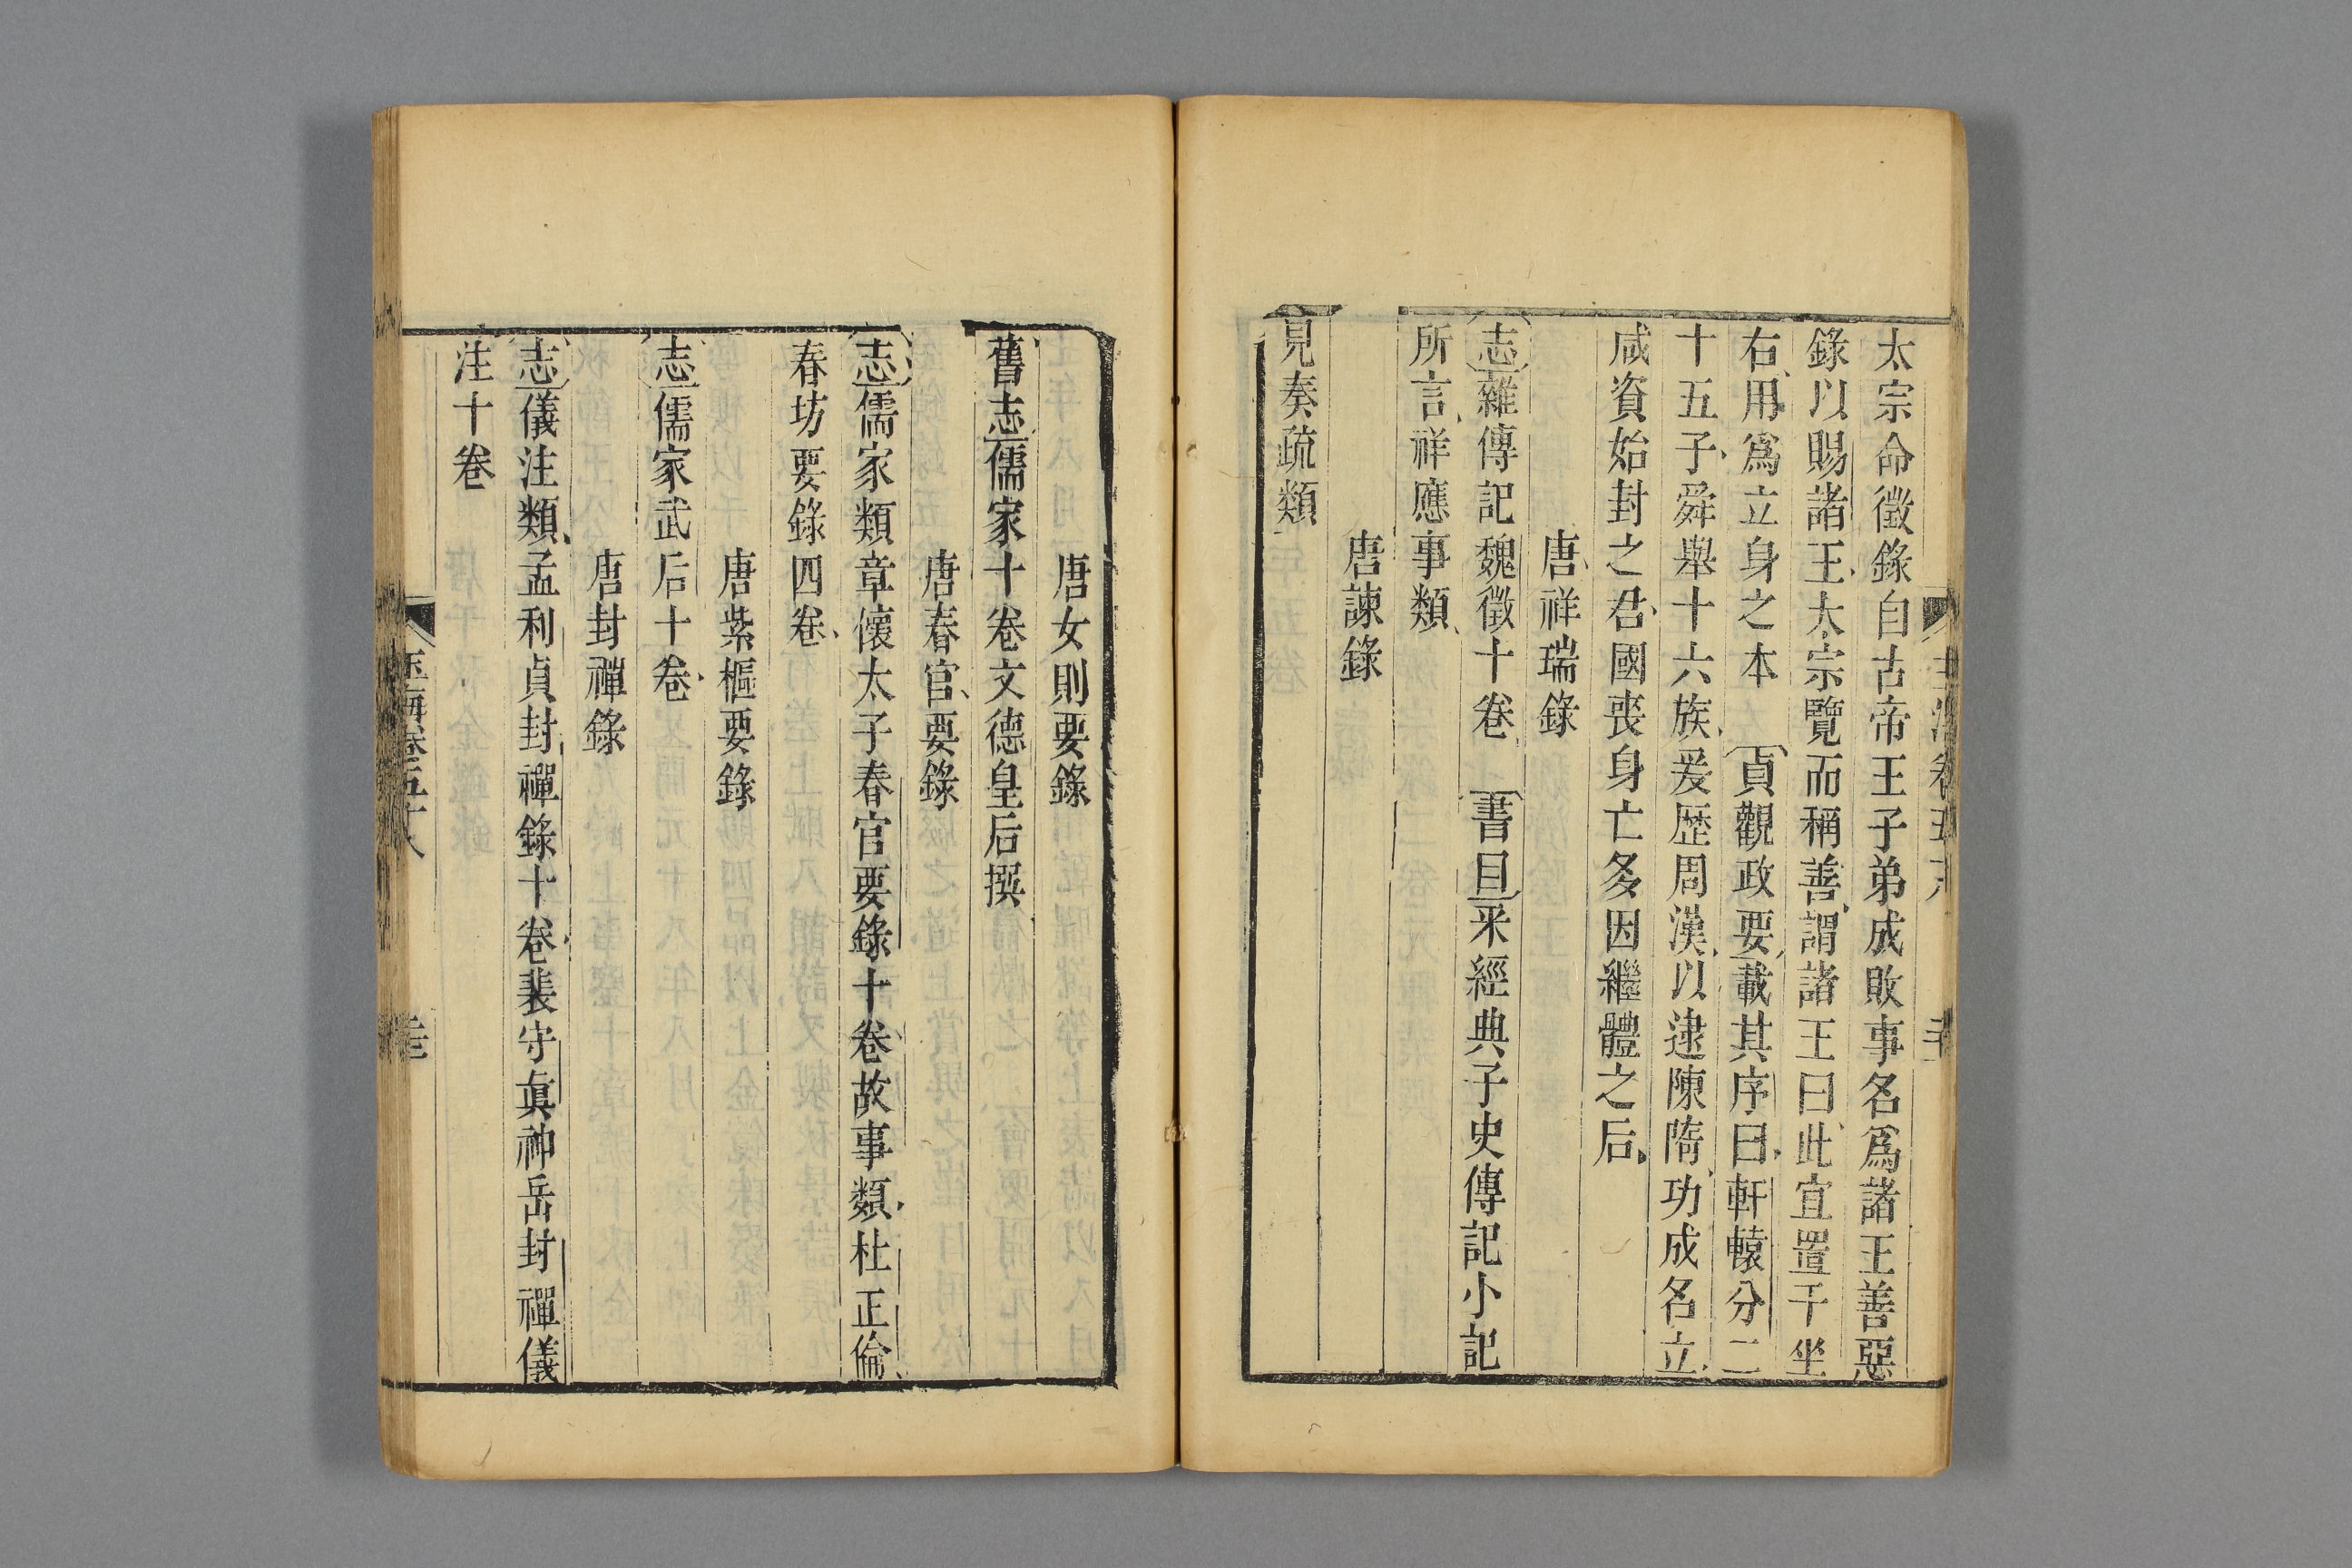 太宗命徵錄自古帝王子弟成敗事名爲諸王善惡
錄以賜諸王太宗覽而稱善謂諸王曰此宜置于坐
右用爲立身之本 貞觀政要載其序曰軒轅分二
十五子舜舉十六族爰歷周漢以逮陳隋功成名立
咸資始封之君國喪身亡多因繼體之后
唐祥瑞錄
志雜傳記魏徵十卷 書目采經典子史傳記小記
所言祥應事類
唐諫錄
見奏疏類
唐女則要錄
舊志儒家十卷文德皇后撰
唐春官要錄
志儒家類章懷太子春官要錄十卷故事類杜正倫
春坊要錄四卷
唐紫樞要錄
志儒家武后十卷
唐封禪錄
志儀注類孟利貞封禪錄十卷裴守眞神岳封禪儀
注十卷
玉海卷五十八